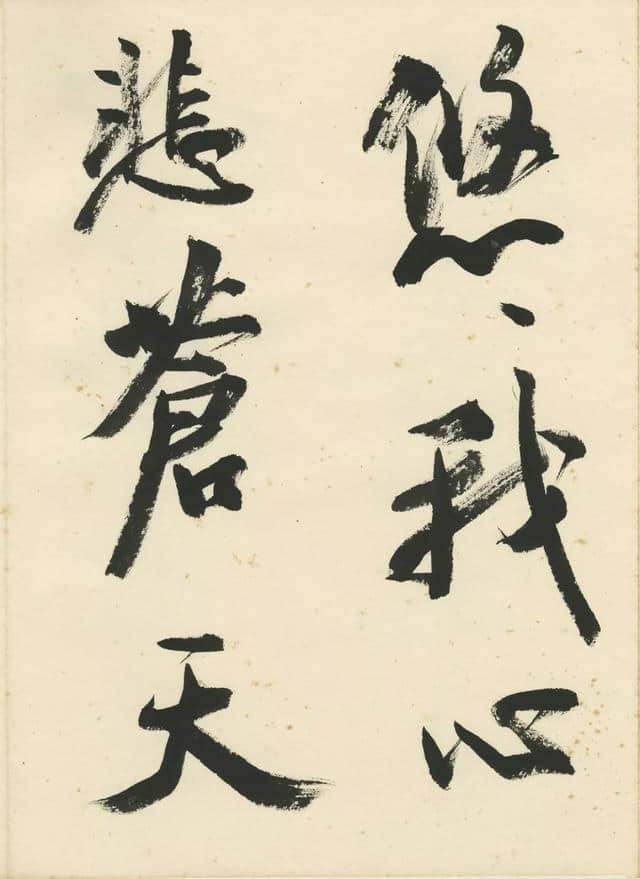 悠、我心
悲蒼天